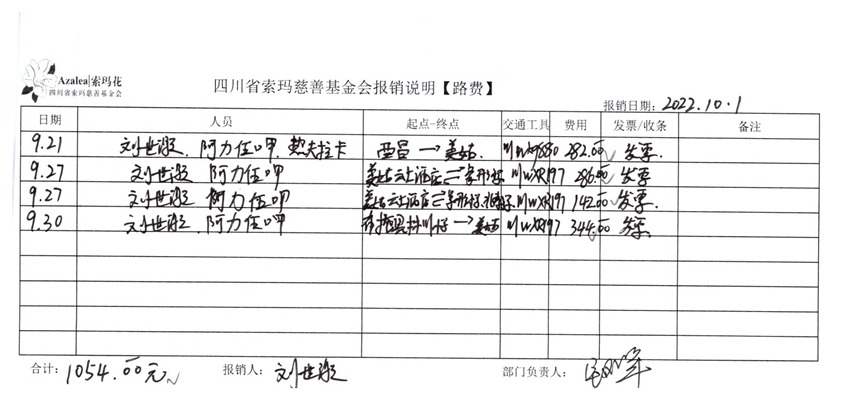 Azalea|索玛花
四川省索玛慈善基金会
四川省索玛慈善基金会报销说明【路费】
报销日期：2022.10.1
日期 人员 起点-终点 交通工具 费用 发票/收条 备注
9.21 刘世 阿力伍呷 拉卡 西昌→美姑 282.00 发票
9.27 刘世 阿力伍呷 美姑 酒店 川WXR197 286.00 发票
9.27 刘世 阿力伍呷 美姑 酒店 川WXR197 142.00 发票
9.30 刘世 阿力伍呷 →美姑 川WXR197 344.00 发票
合计：1054.00元 报销人：刘世 部门负责人：